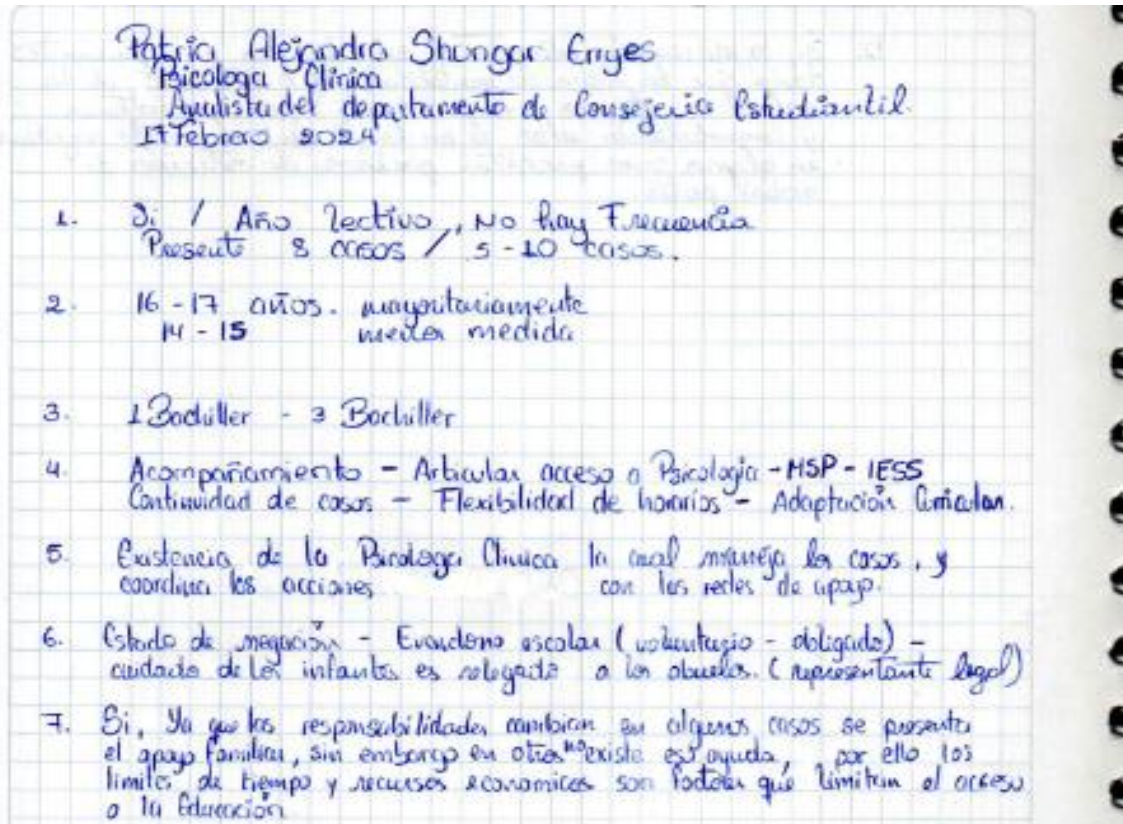 Patria Alejandra Shungar Erryes
Psicologa Clinica
Analista del departamento de Consejeria Estudiantil.
17 Febrero 2024
1. Si / Año lectivo, No hay Frecuencia
Presente 8 casos / 5-10 casos.
2. 16-17 años. mayoritariamente
14-15 menor medida
3. 1 Bachiller - 3 Bachiller
4. Acompañamiento - Articular acceso a Psicologia - MSP - IESS
Continuidad de casos - Flexibilidad de horarios - Adaptación Curricular.
5. Existencia de la Psicologa Clinica la cual maneja los casos, y
coordina las acciones con las redes de apoyo.
6. Estado de negación - escolar (voluntario - obligado) -
cuidado de los infantes es relegado a los abuelos. (representante legal)
7. Si, Ya que las responsabilidades cambian en algunos casos se presenta
el apoyo familiar, sin embargo en otros no existe esta ayuda, por ello los
limites de tiempo y recursos economicos son factores que limitan el acceso
a la Educación